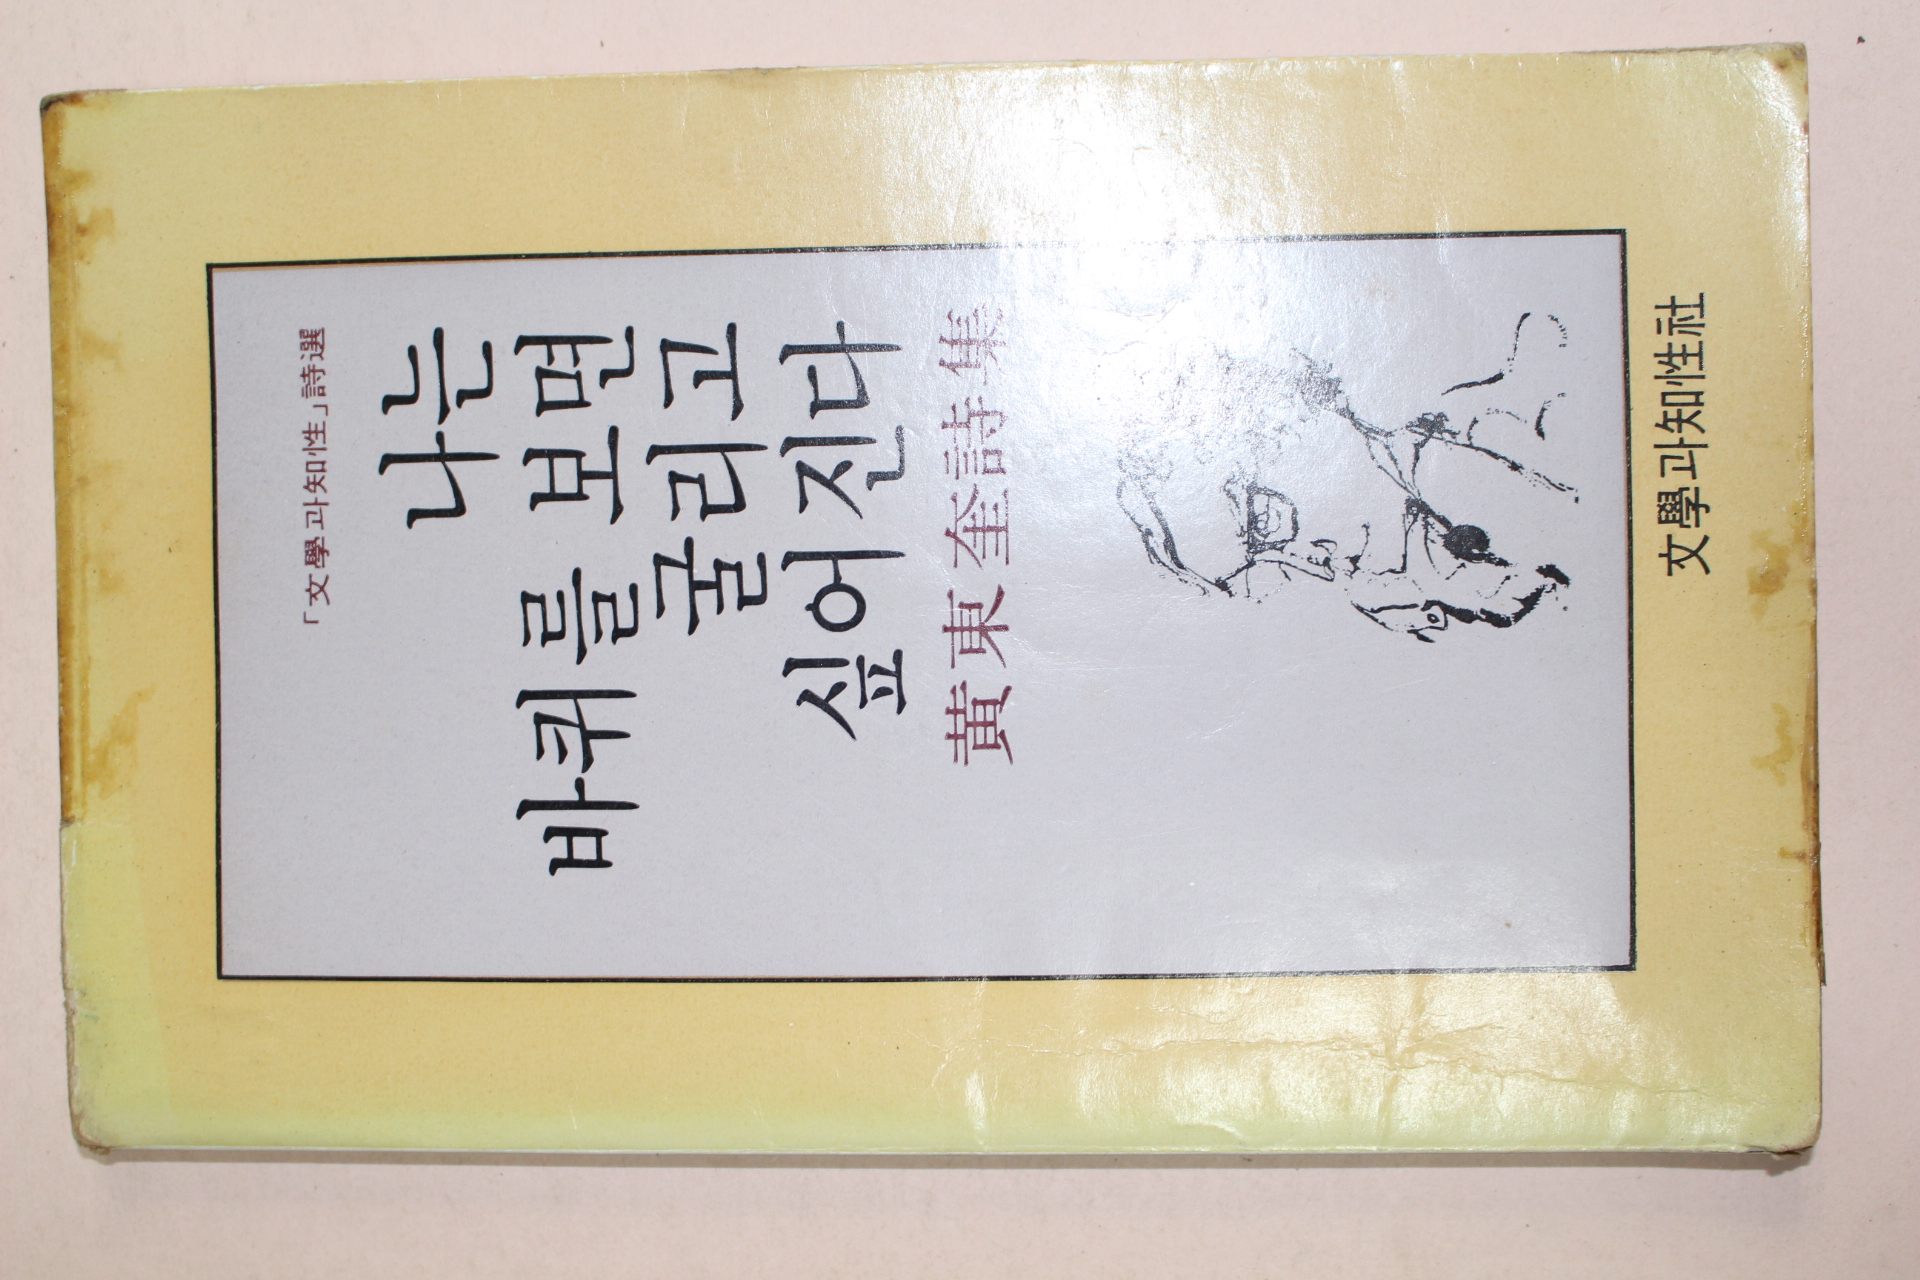 「文學과知性」詩選
나는
바퀴를 보면
굴리고
싶어진다
黃東奎詩集
文學과知性社